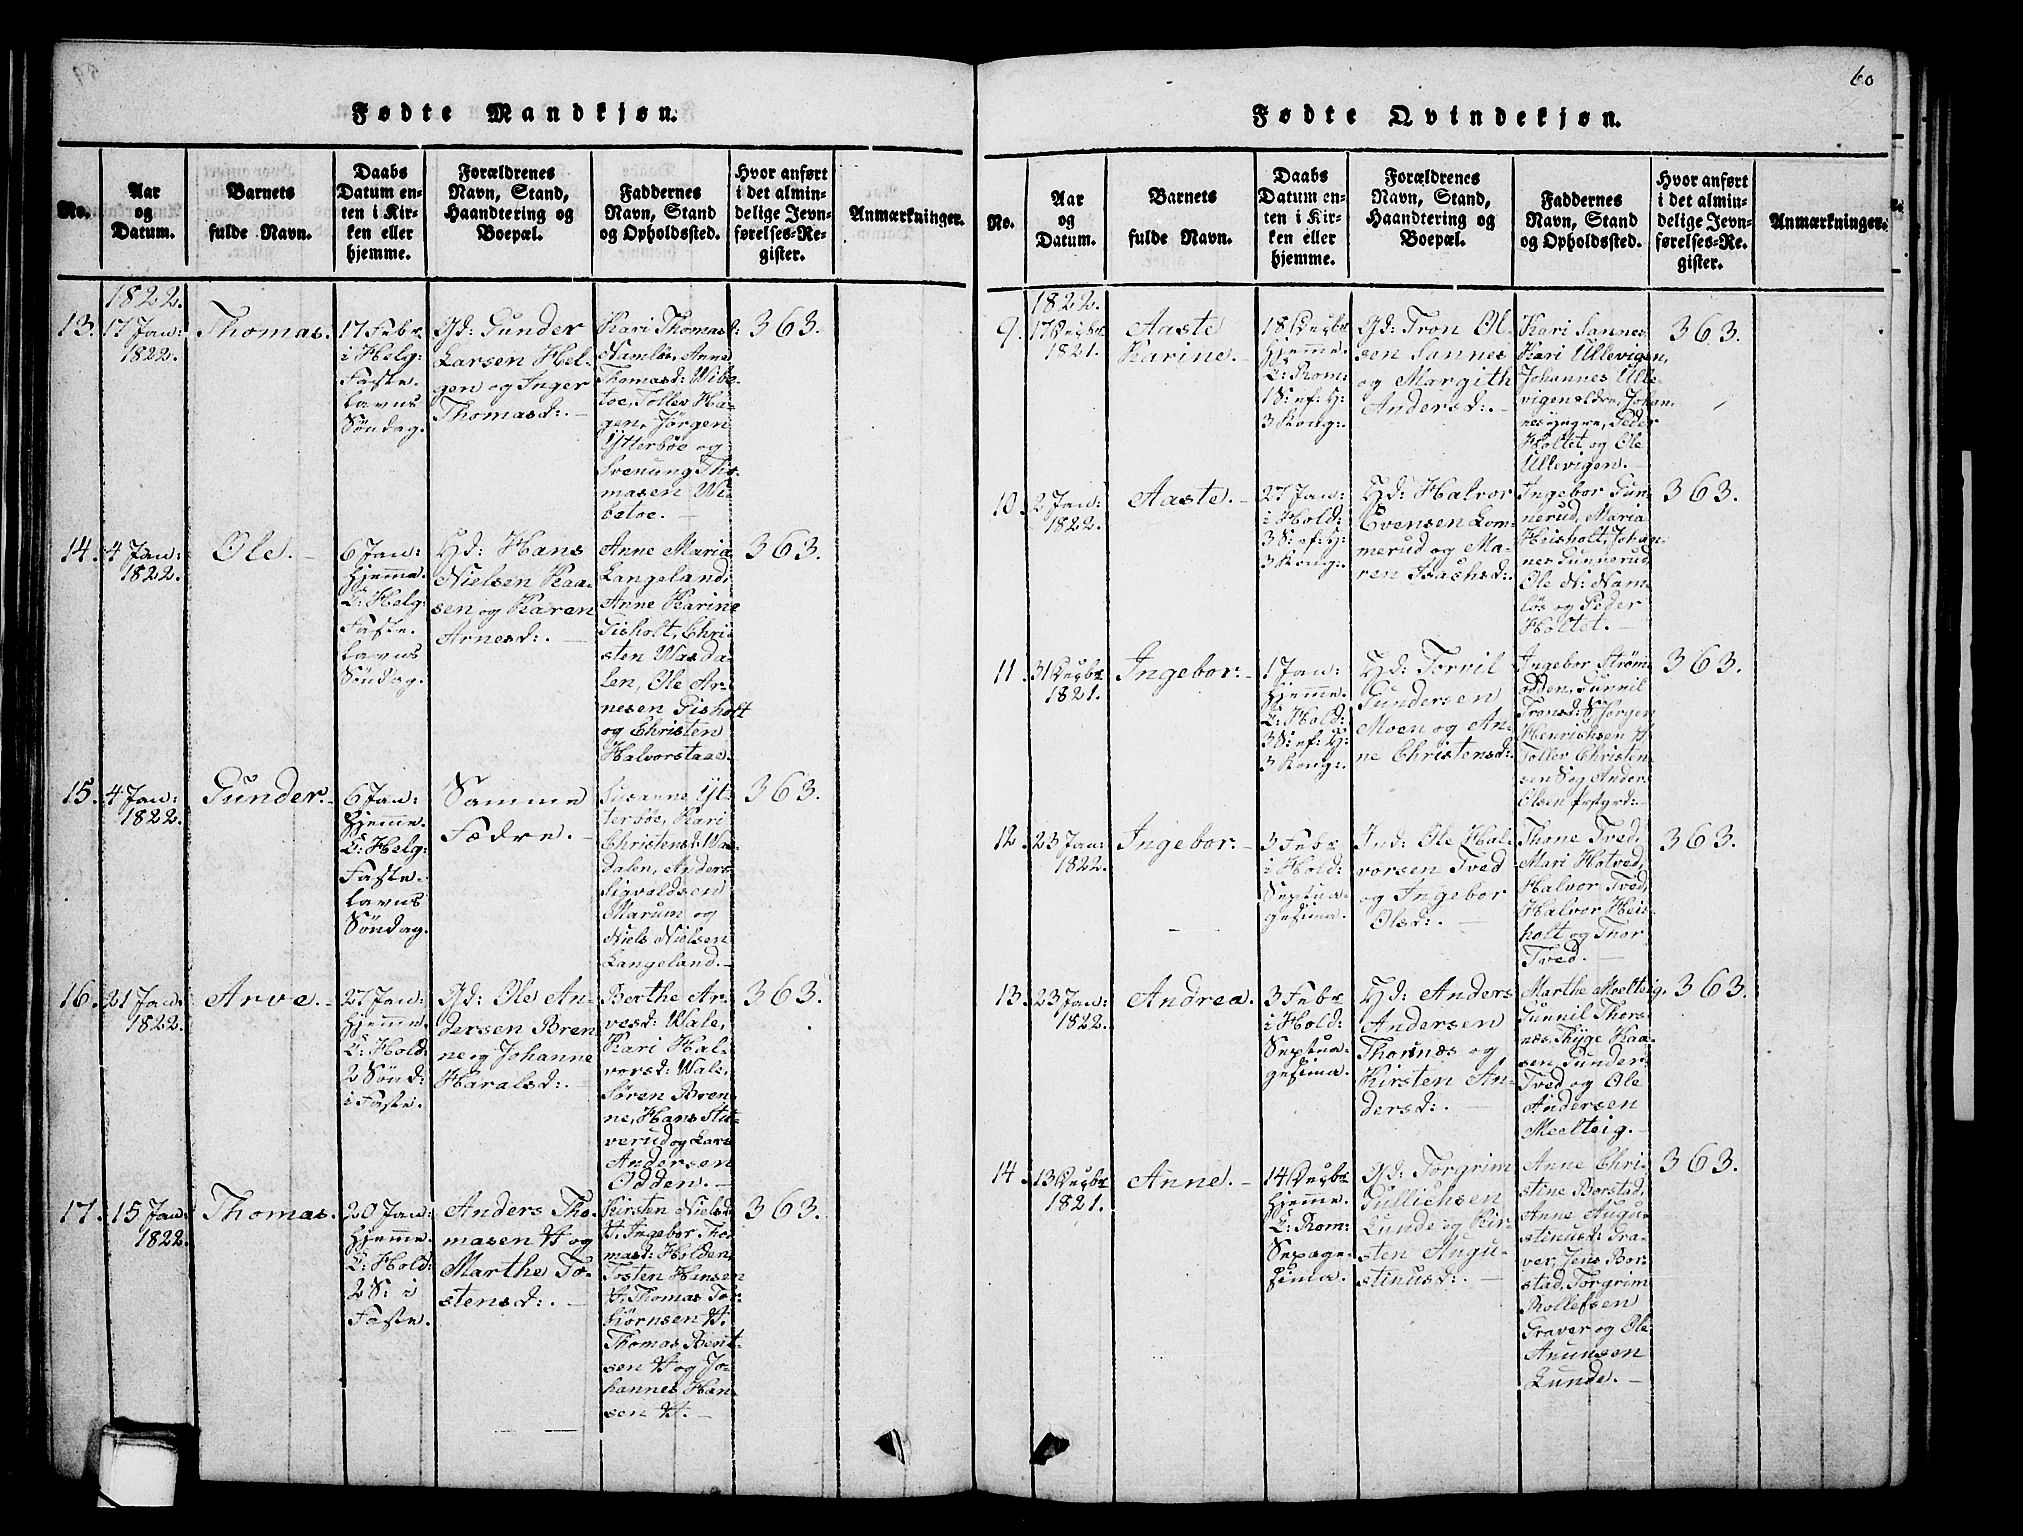 60
Fødte Mandkjøn.
No.
Aar
og
Datum.
Barnets
fulde Navn.
Daabs
Datum en-
ten i Kir-
ken eller
hjemme.
Forældrenes
Navn, Stand,
Haandtering og
Boepæl.
Faddernes
Navn, Stand
og Opholdssted.
Hvor anført
i det almin-
delige Jevn-
førelses-Re-
gister.
Anmærkninger.
1822.
13.
17 Jan:
1822.
Thomas.
17 Febr
i Helg:
Faste-
lavns
Søndag.
Gd: Gunder
Larsen Hel-
gen og Inger
Thomasd:.
Kari Thomasd:
Namløs, Anne
Thomasd: Wibe-
toe, Tollev Ha-
gen, Jørgen
Ytterbøe og
Svenung Tho-
masen Wi-
betoe.
363.
14.
4 Jan:
1822.
Ole.
6 Jan:
hjemme.
T: Helg:
Faste-
lavns
Søndag.
Hd: Hans
Nielsen Kaa-
sen og Karen
Arnesd:.
Anne Maria
Langeland,
Anne Karine
Gisholt, Chri-
sten Wasda-
len, Ole Ar-
nesen Gisholt
og Christen
Halvorstaae.
363.
15.
4 Jan:
1822.
Gunder.
6 Jan:
hjemme.
T: Helg:
Faste-
lavns
Søndag.
Samme
Fædre.
Susanne Yt-
terbøe, Kari
Christensd: Was-
dalen, Anders
Sigvaldsen
Marum og
Niels Nielsen
Langeland.
363.
16.
21 Jan:
1822.
Arve.
27 Jan:
hjemme.
T: Hold:
2 Sønd:
i Faste.
Gd: Ole An-
dersen Bren-
ne og Johanne
Haralsd:.
Berthe Ar-
vesd: Wale,
Kari Hal-
vorsd: Wale,
Søren Bren-
ne, Hans Stu-
verud og Lars
Andersen
Odden.
363.
17.
15 Jan:
1822.
Thomas.
20 Jan:
hjemme.
T: Hold:
2 S: i
Faste.
Anders Tho-
masen H og
Marthe To-
stensd:.
Kirsten Nielsd:
H, Ingebor Tho-
masd: Holden,
Tosten Hansen
H, Thomas Tor-
biörnsen H.
Thomas Bent-
sen H og Jo-
hannes Han-
sen H.
363.
Fødte Qvindekjøn.
No.
Aar
og
Datum.
Barnets
fulde Navn.
Daabs
Datum en-
ten i Kir-
ken eller
hjemme.
Forældrenes
Navn, Stand,
Haandtering og
Boepæl.
Faddernes
Navn, Stand
og Opholdssted.
Hvor anført
i det almin-
delige Jevn-
førelses-Re-
gister.
Anmærkninger.
1822.
9.
17 Decbr
1821.
Aaste
Karine.
18 Decbr
hjemme.
T: Rom:
1 S: ef: H:
3 Kong:
Gd: Tron Ol-
sen Sannes
og Margith
Andersd:.
Kari Sannes,
Kari Ullevigen,
Johannes Ulle-
vigen ældre, Johan-
nes yngre, Peder
Holtet og Ole
Ullevigen.
363.
10.
2 Jan:
1822.
Aaste.
27 Jan:
i Hold:
3 S: ef: H:
3 Kong:
Hd: Halvor
Evensen Lom-
merud og Ma-
ren Isachsd:.
Ingebor Gun-
nerud, Maria
Heisholt, Johan-
nes Gunnerud,
Ole N: Nam-
løs og Peder
Holtet.
363.
11.
31 Decbr
1821.
Ingebor:
1 Jan:
hjemme.
T: Hold:
3 S: ef: H:
3 Kong:
Hd: Torvil
Gundersen
Moen og An-
ne Christensd:
Ingebor Ström-
odden, Gunnil
Tronsd: S, Jørgen
Henrichsen H
Toller Christen-
sen S og Anders
Olsen
363.
12.
23 Jan:
1822.
Ingebor:
3 Febr
i Hold:
Septua-
gesima.
Ind: Ole Hal-
vorsen Tved
og Ingebor
Olsd:.
Thone Tved,
Mari Hotved,
Halvor Tved,
Halvor Heis-
holt og Thor
Tved.
363.
13.
23 Jan:
1822.
Andrea.
3 Febr
i Hold:
Septua-
gesima.
Hd: Anders
Andersen
Thorsnæs og
Kirsten An-
dersd:.
Marthe Meelteig,
Gunnil Thors-
næs, Thyge Kaa-
sen, Gunder
Tved og Ole
Andersen
Meelteig.
363.
14.
13 Decbr
1821.
Anne.
14 Decbr
hjemme.
T: Rom:
Sexage-
sima.
Gd: Torgrim
Gullichsen
Lunde og Kir-
sten Augu-
stinusd:.
Anne Chri-
stine Borstad,
Anne Augu-
stinusd: Gra-
ver, Jens Bor-
stad, Torgrim
Rollefsen
Graver og Ole
Anunsen
Lunde.
363.